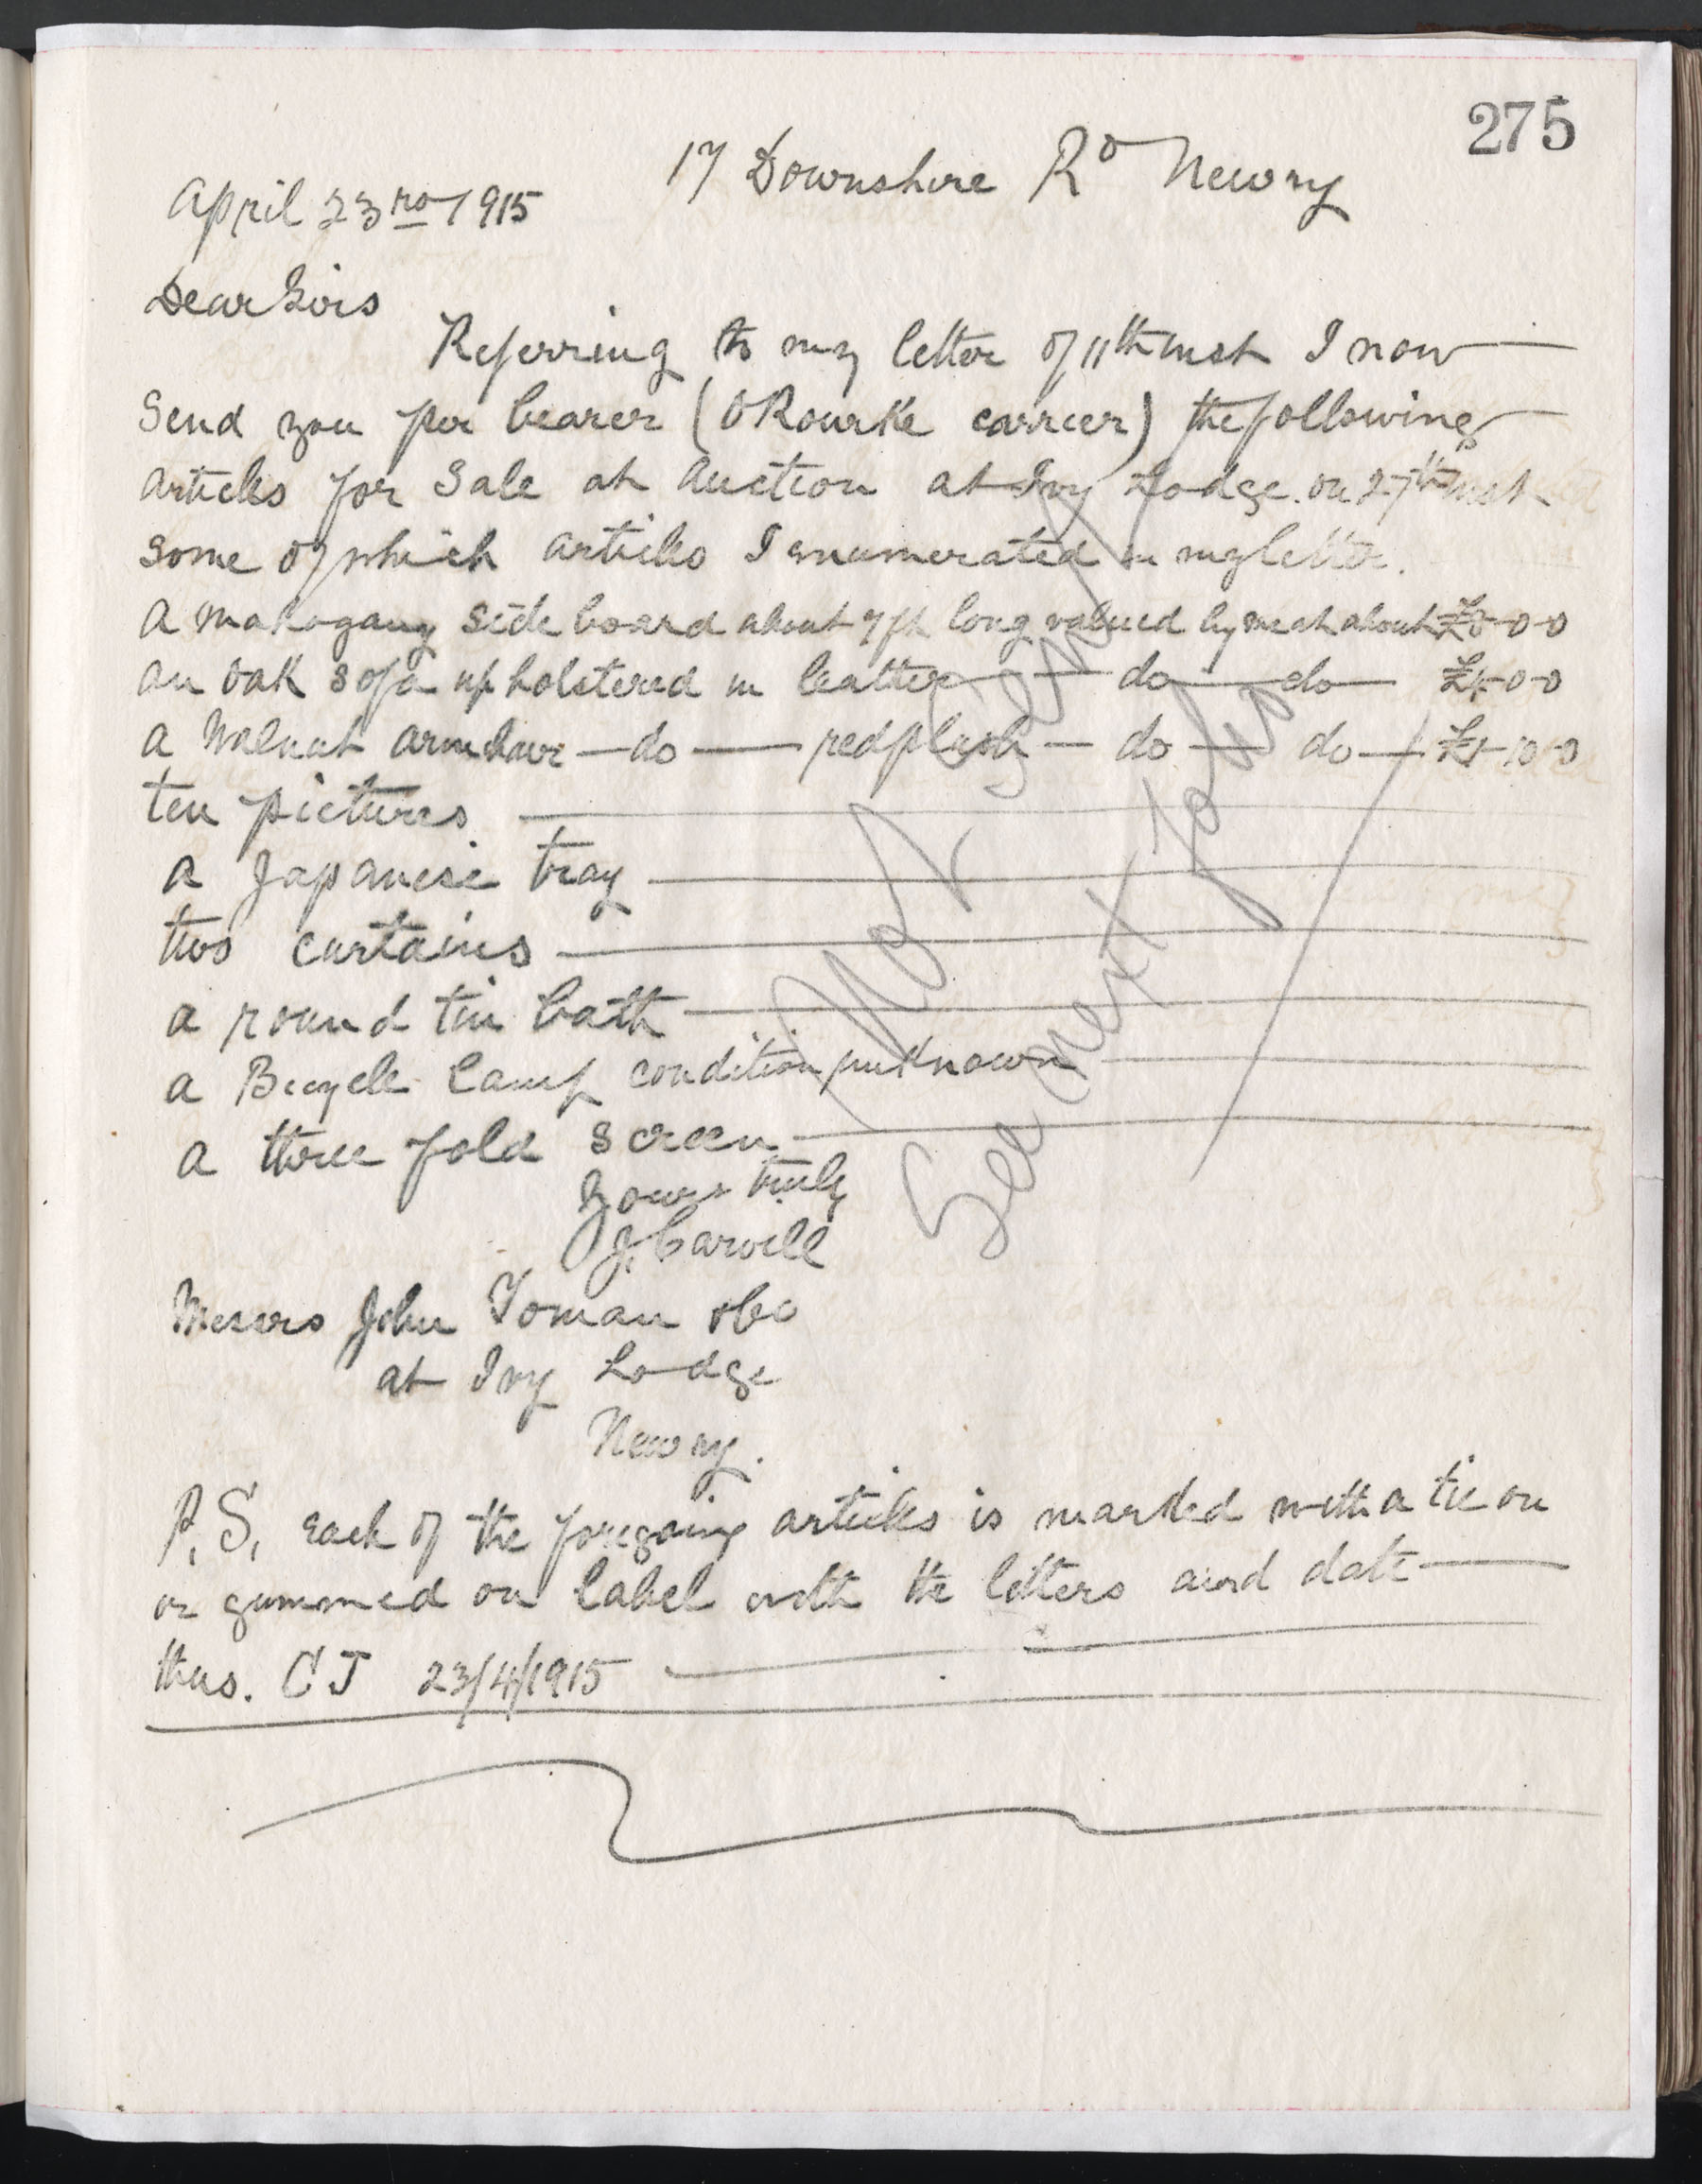 275
17 Downshire Rd Newry
April 23rd 1915
Dear Sirs
Referring to my letter of 11th inst I now
Send you per bearer (O'Rourke carrier) the following
articles for Sale at Auction at Ivy Lodge. on 27th inst
some of which articles I enumerated in my letter.
A mahogany Side board about 7ft long valued by me at about £8-0-0
an oak Sofa upholstered in leather do do £4-0-0
a Walnut armchair - do - red plush - do - do - £1-10-0
ten pictures
a Japanese tray
two curtains
a round tin bath
a Bicycle lamp condition unknown
a three fold Screen
Yours truly
J. Carvill
Messrs John Toman & Co
at Ivy Lodge
Newry.
P.S. each of the foregoing articles is marked with a tie on
or gummed on label with the letters and date
thus. CJ 23/4/1915
Not Sent
See next folio